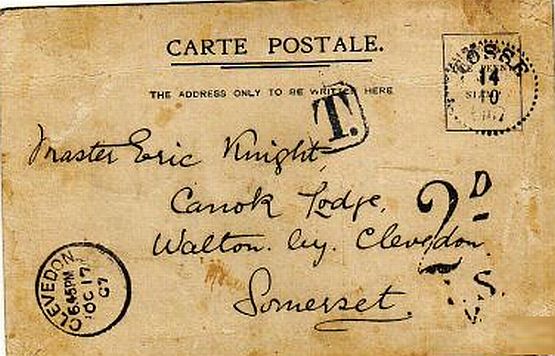 CARTE POSTALE.
THE ADDRESS ONLY TO BE WRITTEN HERE
T.
14
10
Master Eric Knight
Canok Lodge,
Walton. by. Clevedon
Somerset.
2D
CLEVEDON
6.45PM
OC 17
07